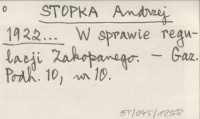 STOPKA Andrzej
1922... W sprawie regu-
lacji Zakopanego. – Gaz.
Podh. 10, nr 10.